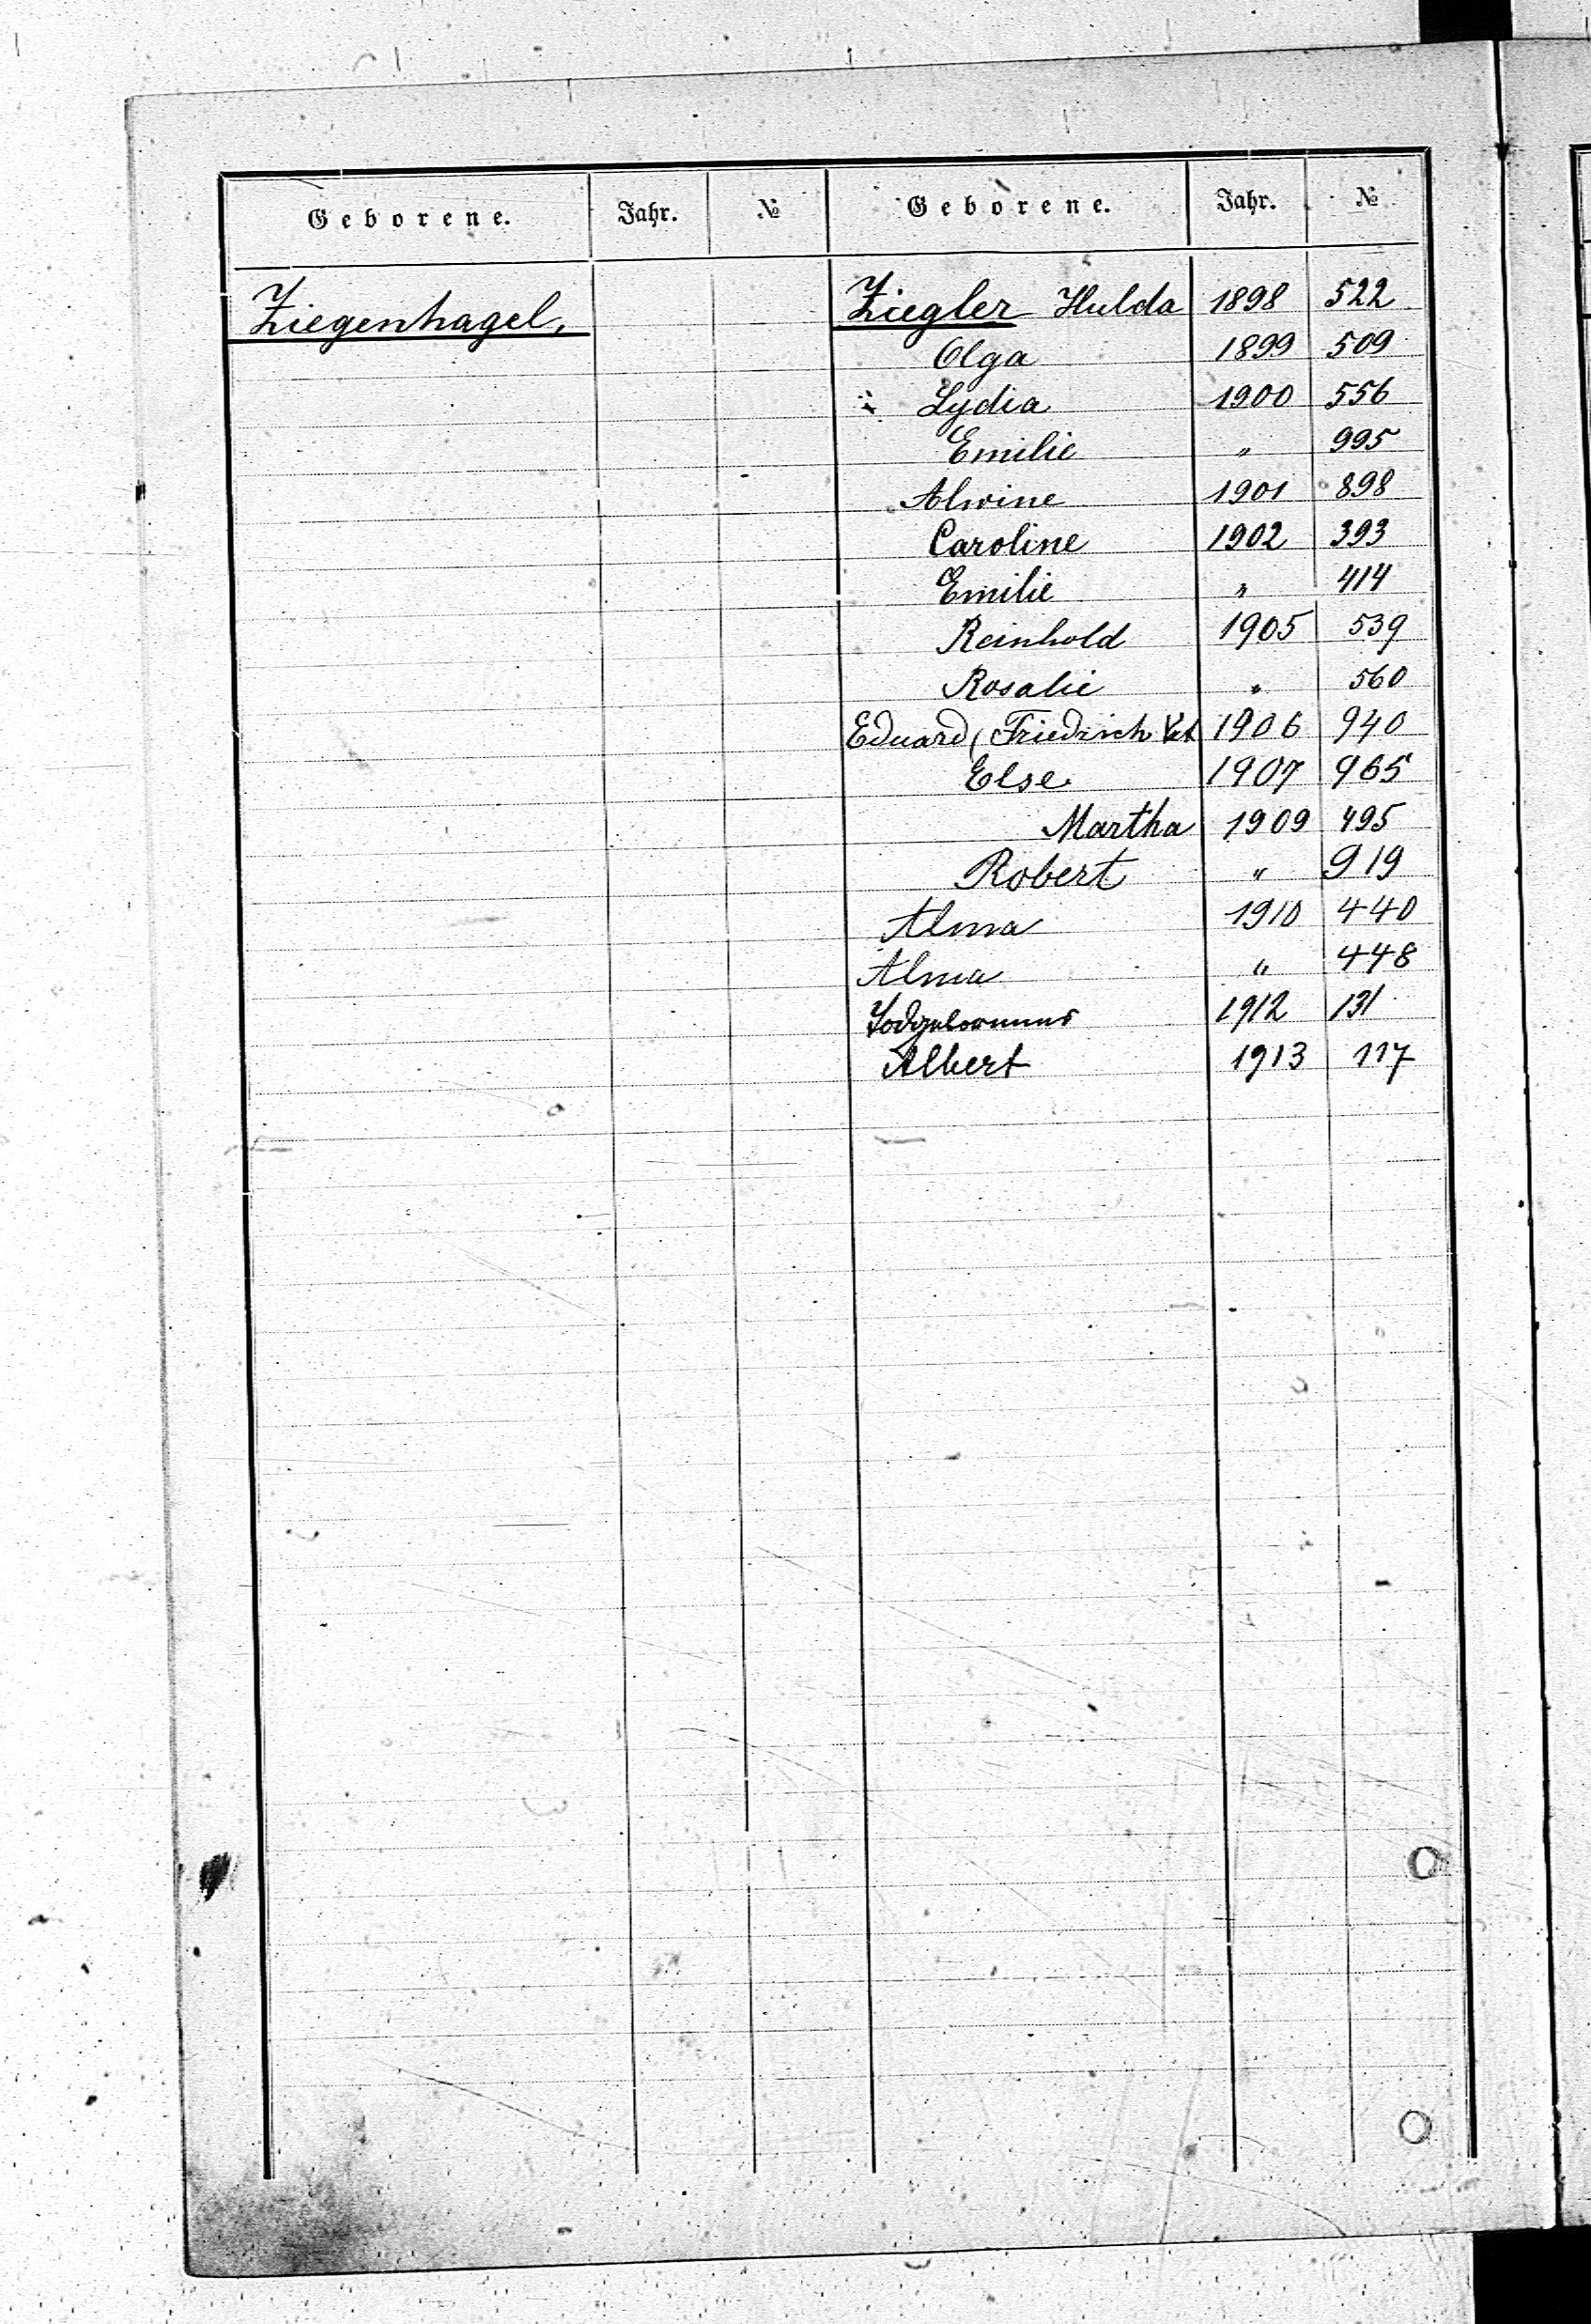 Geborene. Jahr. № Geborene. Jahr. №
Ziegenhagel,
Ziegler Hulda 1898 522
Olga 1899 509
Lydia 1900 556
Emilie " 995
Alwine 1901 898
Caroline 1902 393
Emilie " 414
Reinhold 1905 539
Rosalie " 560
Eduard (Friedrich 1906 940
Else 1907 965
Martha 1909 495
Robert " 919
Alma 1910 440
Alma " 448
1912 131
Albert 1913 117